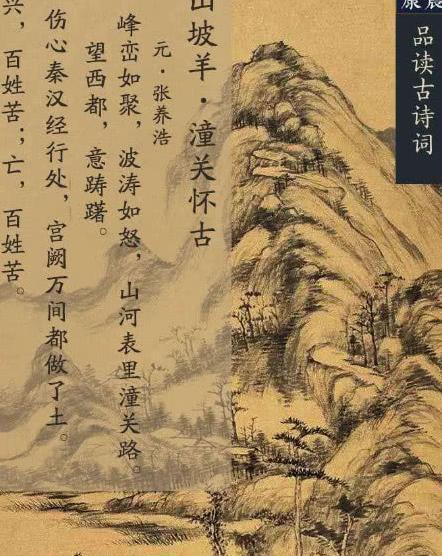 品读古诗词
山坡羊·潼关怀古
元·张养浩
峰峦如聚，波涛如怒，山河表里潼关路。
望西都，意踌躇。
伤心秦汉经行处，宫阙万间都做了土。
兴，百姓苦；亡，百姓苦。